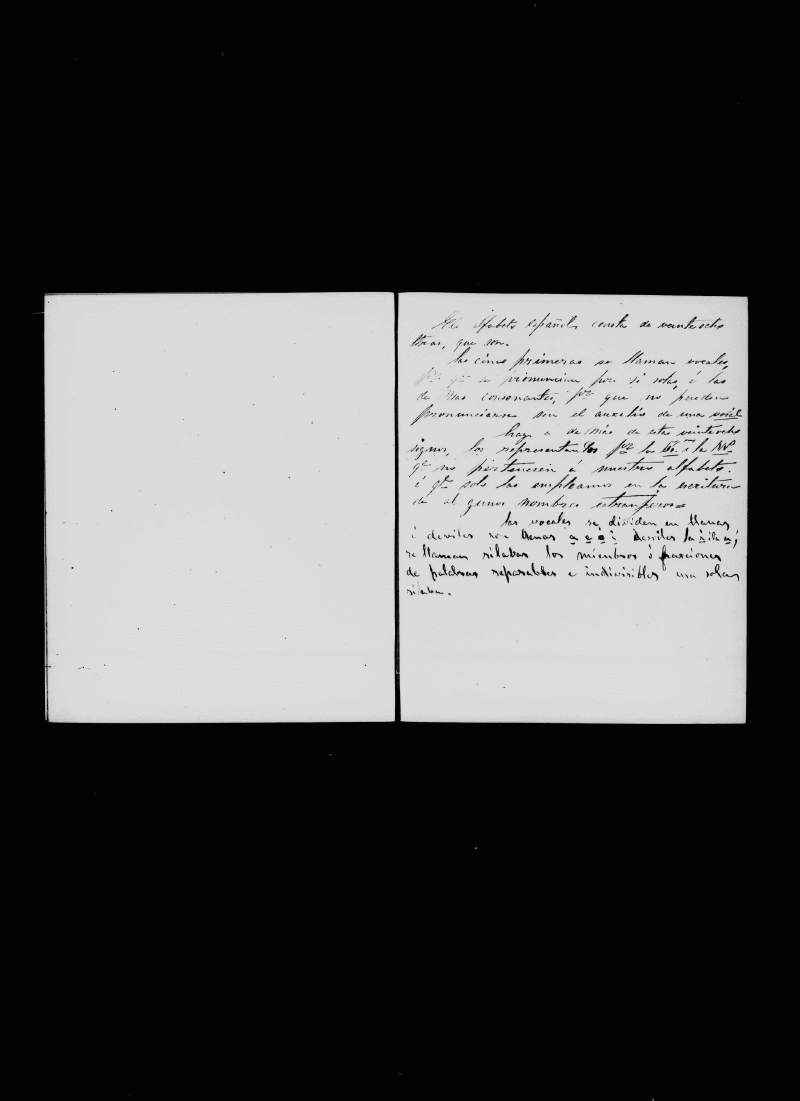 El Alfabeto español consta de veinteocho
letras, que son.
las cinco primeras se llaman vocales,
pr. qe. se pronuncian por si solas, é las
de mas consonantes, pr. que no pueden
pronunciarse sin el auxilio de una vocal
hay a de más de estas veinteocho
signos, los representan los pr. la i la W.
qe. no pertenesen á nuestro alfabeto.
é qe. solo las empleamos en la escritura
de al gunos nombres estranjeros=
las vocales se dividen en llenas
i deviles son llenas a e ó: deviles la i i la u;
se llaman silabas los miembros ó fraxiones
de palabras separables e indivisibles una sola
silaba.